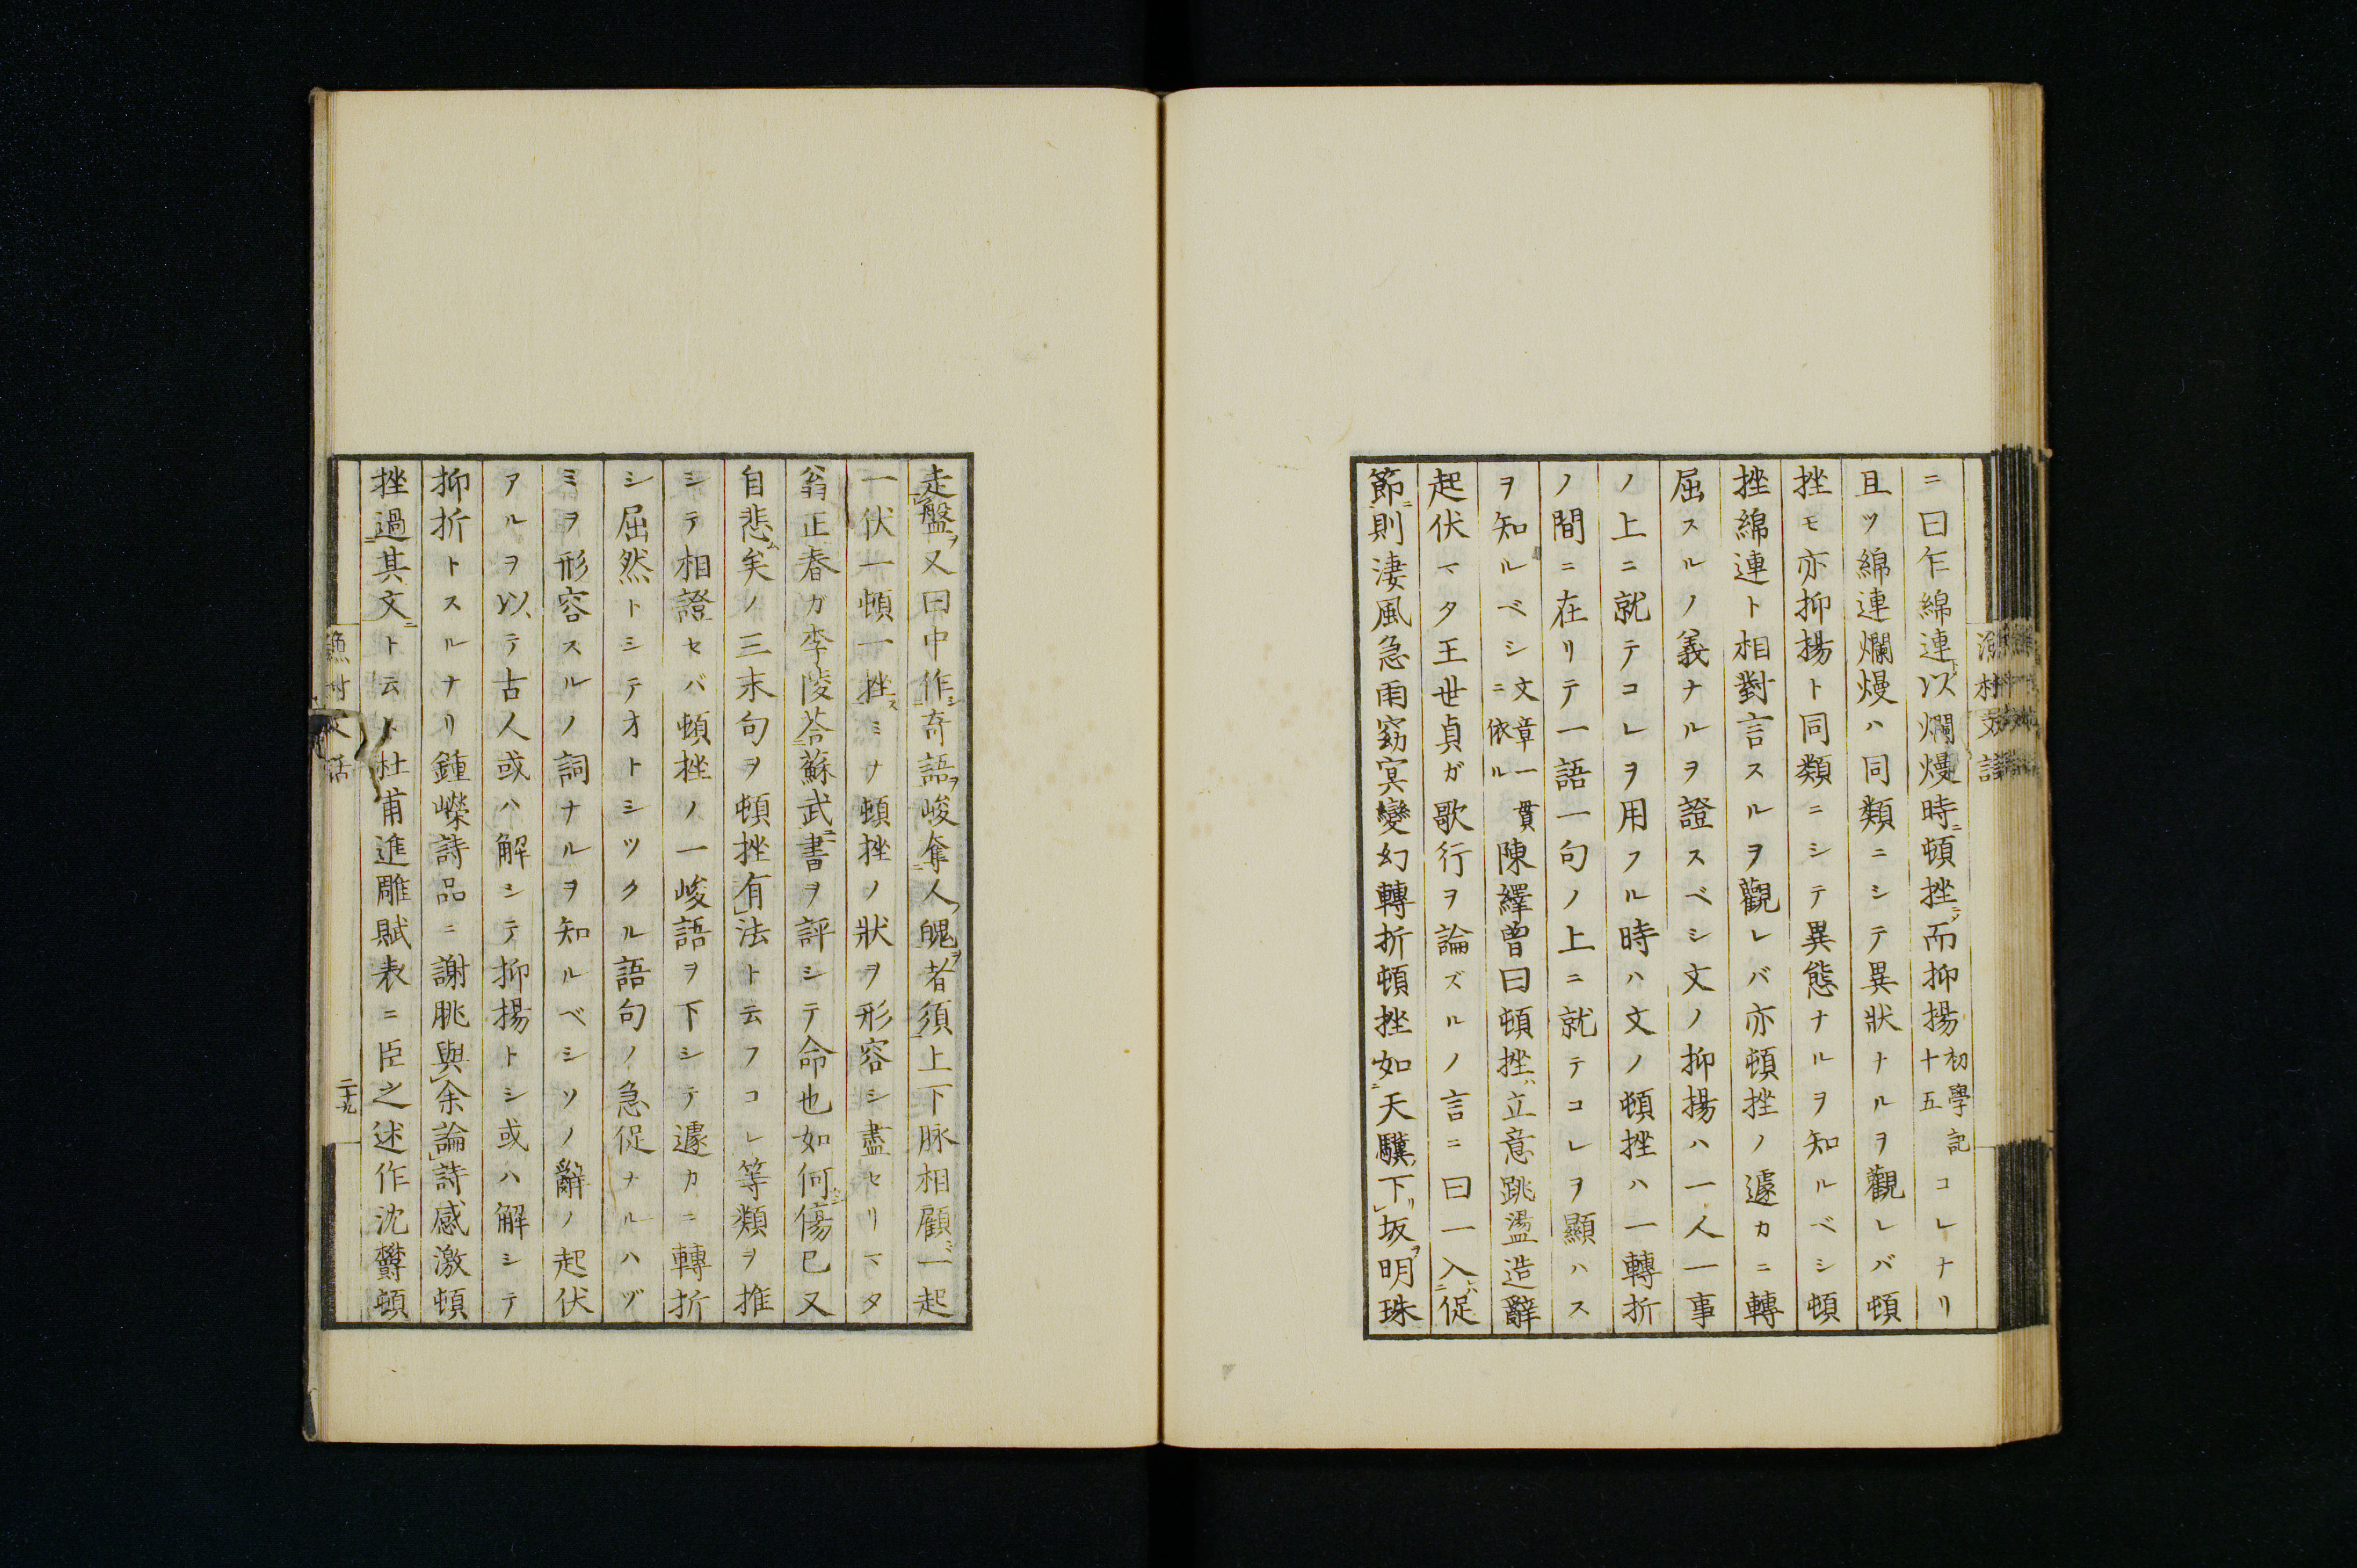 ニ曰乍綿連以爛熳時頓挫而抑揚初學記十五コレナリ
且ツ綿連爛熳ハ同類ニシテ異狀ナルヲ觀レバ頓
挫モ亦抑揚ト同類ニシテ異態ナルヲ知ルベシ頓
挫綿連ト相對言スルヲ觀レバ亦頓挫ノ遽カニ轉
屈スルノ義ナルヲ證スベシ文ノ抑揚ハ一人一事
ノ上ニ就テコレヲ用フル時ハ文ノ頓挫ハ一轉折
ノ間ニ在リテ一語一句ノ上ニ就テコレヲ顯ハス
ヲ知ルベシ文章一貫ニ依ル陳繹曾曰頓挫ハ立意跳盪造辭
起伏マタ王世貞ガ歌行ヲ論ズルノ言ニ曰一入促
節則淒風急雨窈冥變幻轉折頓挫如天驥下坂明珠
漁村文話
走盤又曰中作奇語峻奪人魄者須上下脉相顧一起
一伏一頓一挫ミナ頓挫ノ狀ヲ形容シ盡セリマタ
翁正春ガ李陵荅蘇武書ヲ評シテ命也如何傷已又
自悲矣ノ三末句ヲ頓挫有法ト云フコレ等類ヲ推
シテ相證セバ頓挫ノ一峻語ヲ下シテ遽カニ轉折
シ屈然トシテオトシツクル語句ノ急促ナルハヅ
ミヲ形容スルノ詞ナルヲ知ルベシソノ辭ノ起伏
アルヲ以テ古人或ハ解シテ抑揚トシ或ハ解シテ
抑折トスルナリ鍾嶸詩品ニ謝朓與余論詩感激頓
挫過其文ト云ヒ杜甫進雕賦表ニ臣之述作沈欝頓
漁村文話
二十九